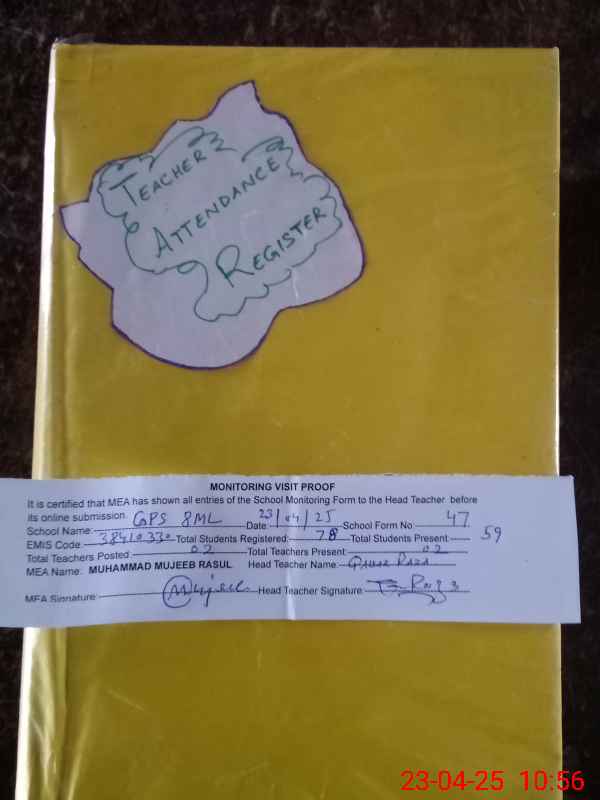 TEACHER
ATTENDANCE
REGISTER
MONITORING VISIT PROOF
It is certified that MEA has shown all entries of the School Monitoring Form to the Head Teacher before
its online submission.
School Name: GPS 8ML Date: 23/04/25 School Form No 47
EMIS Code: 38410330 Total Students Registered: 78 Total Students Present: 59
Total Teachers Posted: 02 Total Teachers Present: 02
MEA Name: MUHAMMAD MUJEEB RASUL Head Teacher Name: Raza
MEA Signature: Mujeeb Head Teacher Signature
23-04-25 10:56